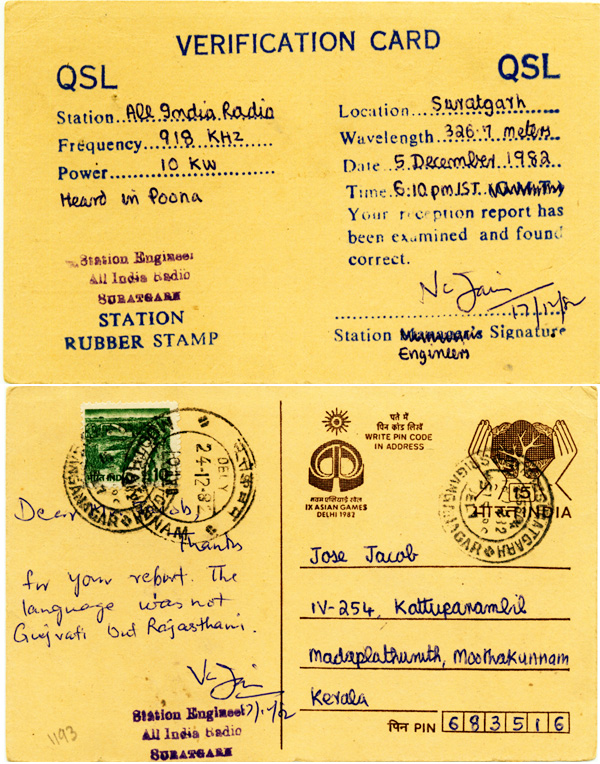 VERIFICATION CARD
QSL
QSL
Station All India Radio
Frequency 918 KHz
Power 10 KW
Heard in Poona
Location Suratgarh
Wavelength 326.7 meters
Date 5 December 1982
Time 6:10 pm IST
Your reception report has
been examined and found
correct.
Station Engineer
All India Radio
SURATGARH
STATION
RUBBER STAMP
17/12/82
Station Signature
Engineers
भारत INDIA
DELY
24-12-82
पते में
पिन कोड लिखें
WRITE PIN CODE
IN ADDRESS
नवम एशियाई खेल
IX ASIAN GAMES
DELHI 1982
15
भारत INDIA
Dear
Thanks
for your report. The
language was not
Gujrati but Rajasthani.
Station Engineer
All India Radio
SURATGARH
1193
Jose Jacob
IV-254, Kattuparambil
Madaplathuruth, Moothakunnam
Kerala
पिन PIN 683516